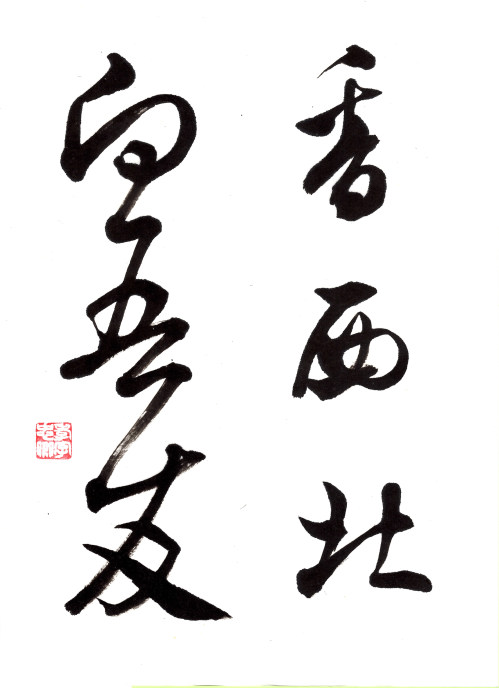 香西北
向吾友